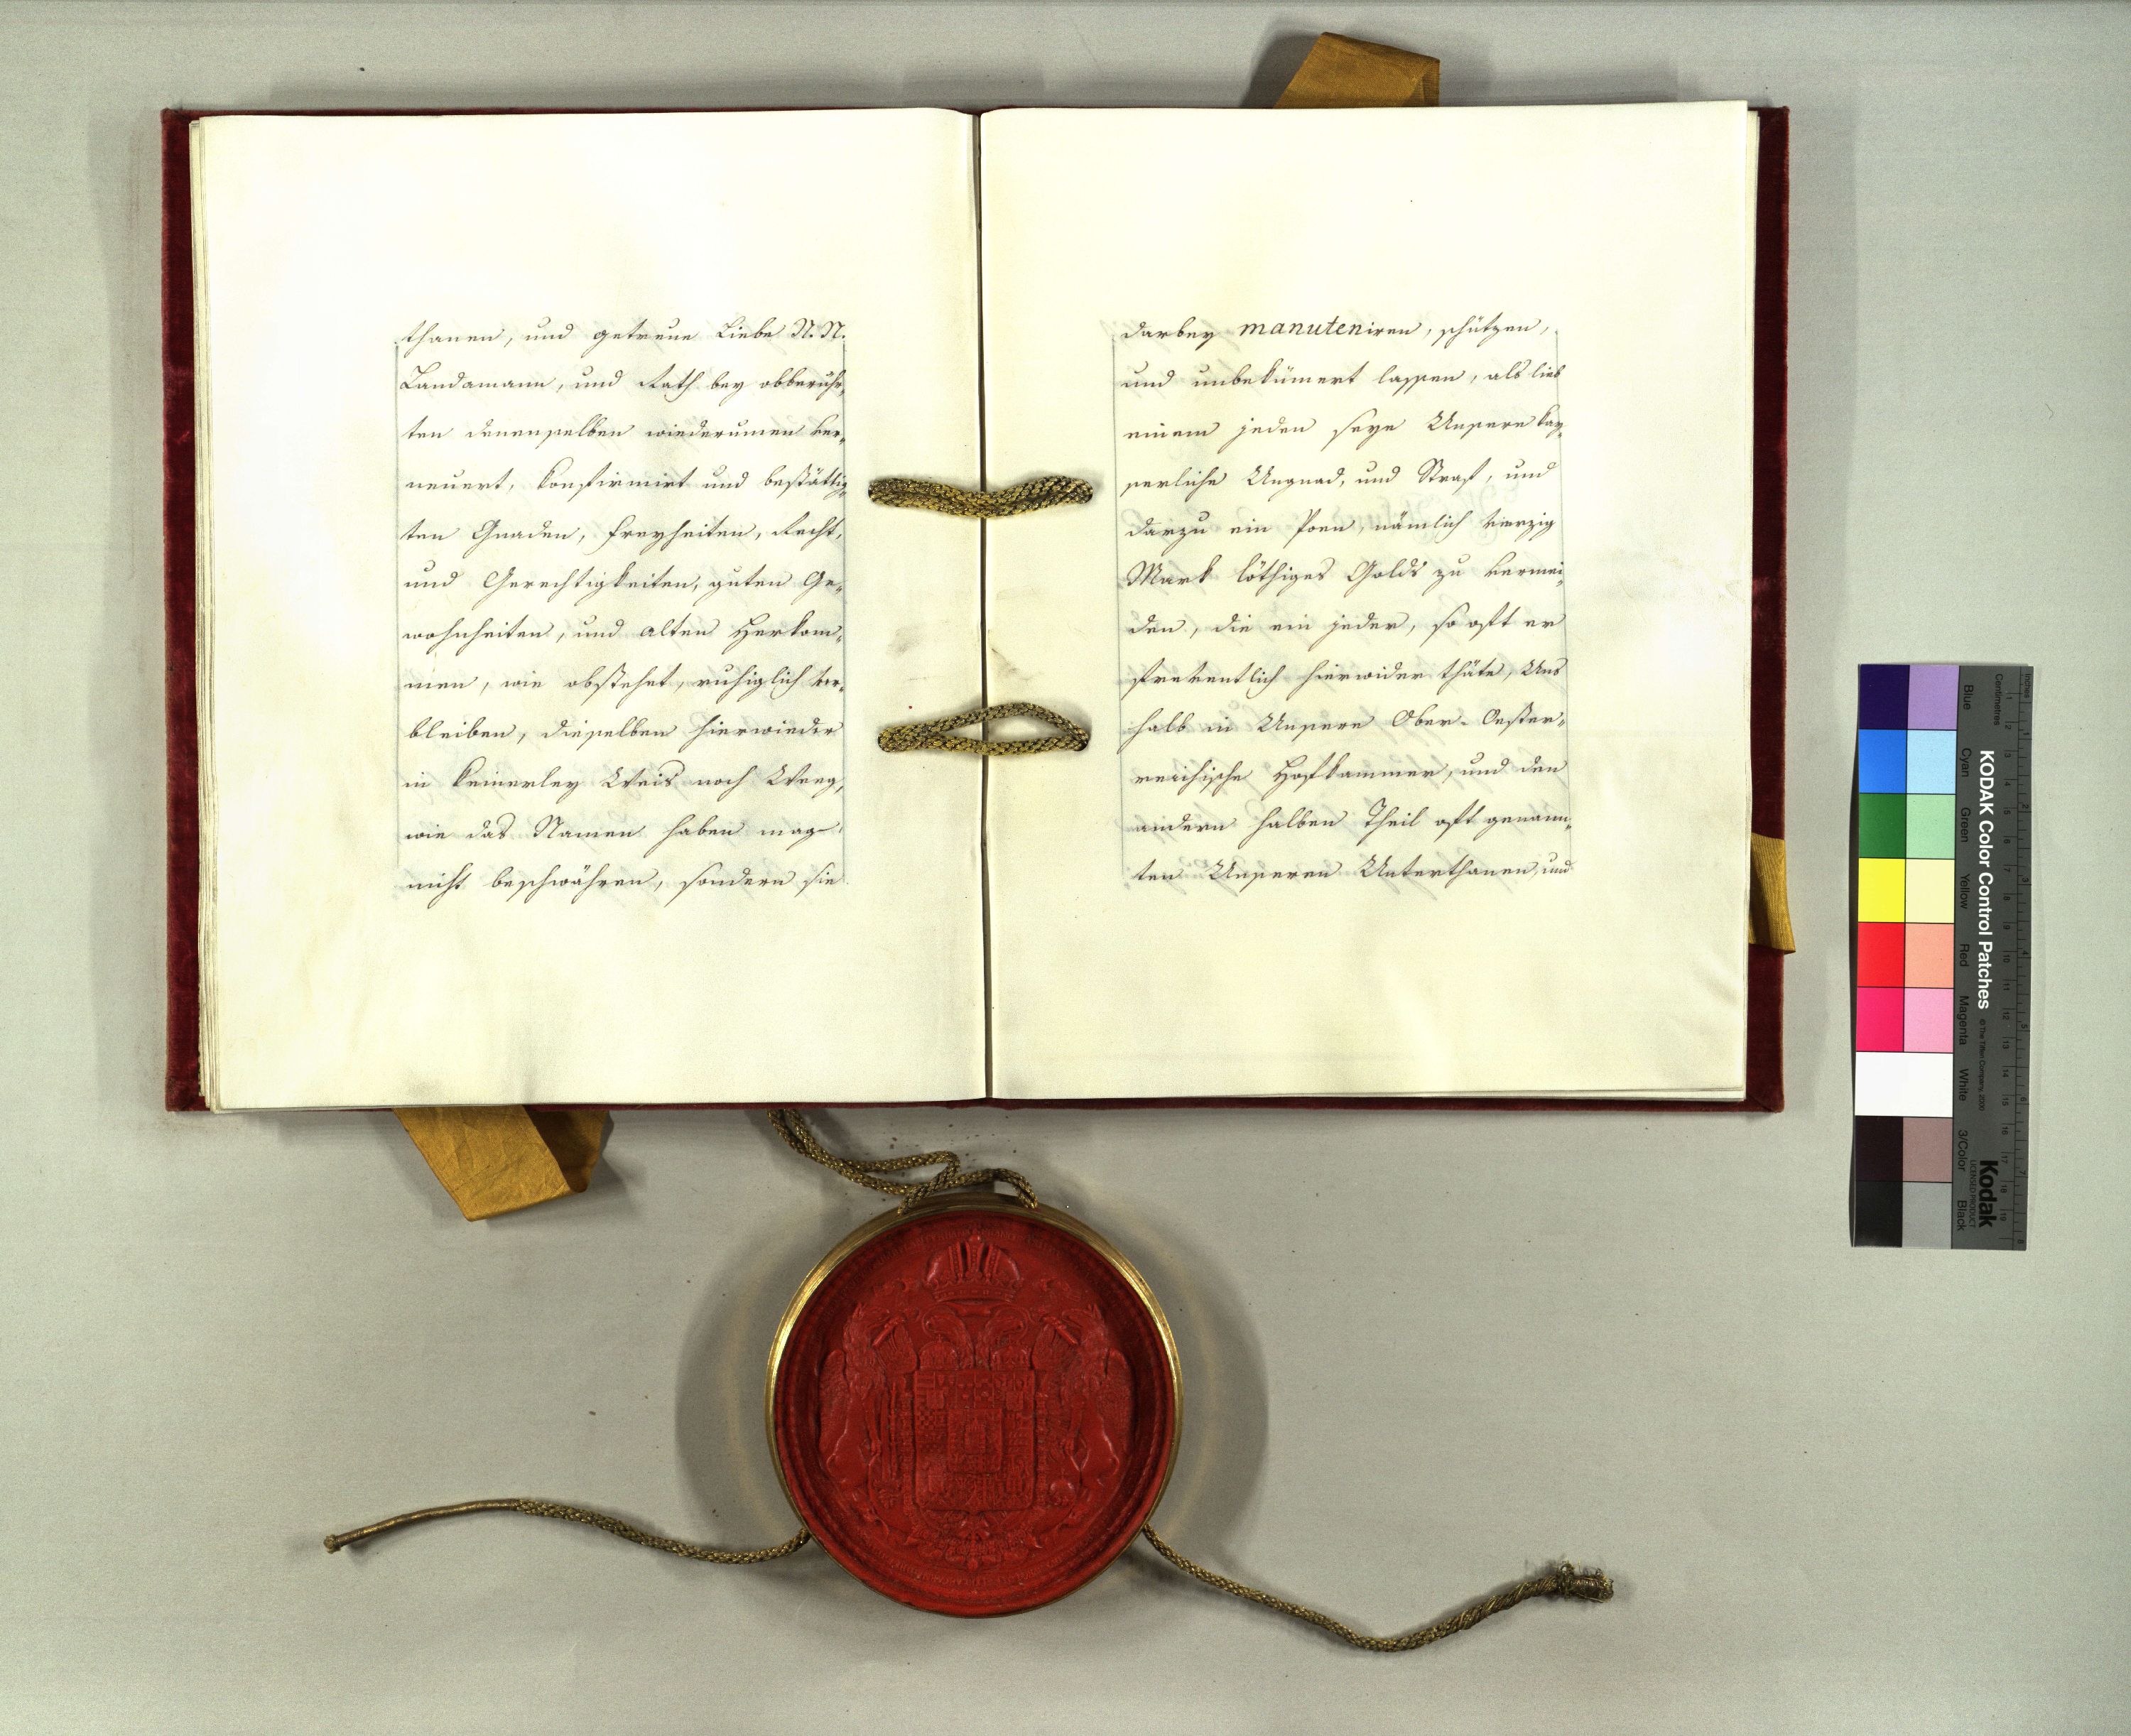 thanen, und getreue Liebe N. N.
Landamann, und Rath bey obberühr„
ten denenselben wiederumen ver„
neuert, konfirmirt und bestättig„
ten Gnaden, Freyheiten, Recht,
und Gerechtigkeiten, guten Ge„
wohnheiten, und alten Herkom„
men, wie obstehet, ruhiglich ver„
bleiben, dieselben hierwieder
in keinerley Weis noch Weeg,
wie das Namen haben mag
nicht beschwähren, sondern sie
darbey manuteniren, schützen,
und unbekümert lassen, als lieb
einem jeden seye Unsere kay„
serliche Ungnad, und Straf, und
darzu ein Poen, nämlich vierzig
Mark löthiges Golds zu vermei„
den, die ein jeder, so oft er
freventlich hierwider thäte, Uns
halb in Unsere Ober-Oester„
reichische Hofkammer, und den
andern halben Theil oft genann„
ten Unseren Unterthanen, und
KODAK Color Control Patches
© The Tiffen Company, 2000
Kodak
LICENSED PRODUCT
Inches
Centimetres
Blue
Cyan
Green
Yellow
Red
Magenta
White
3/Color
Black